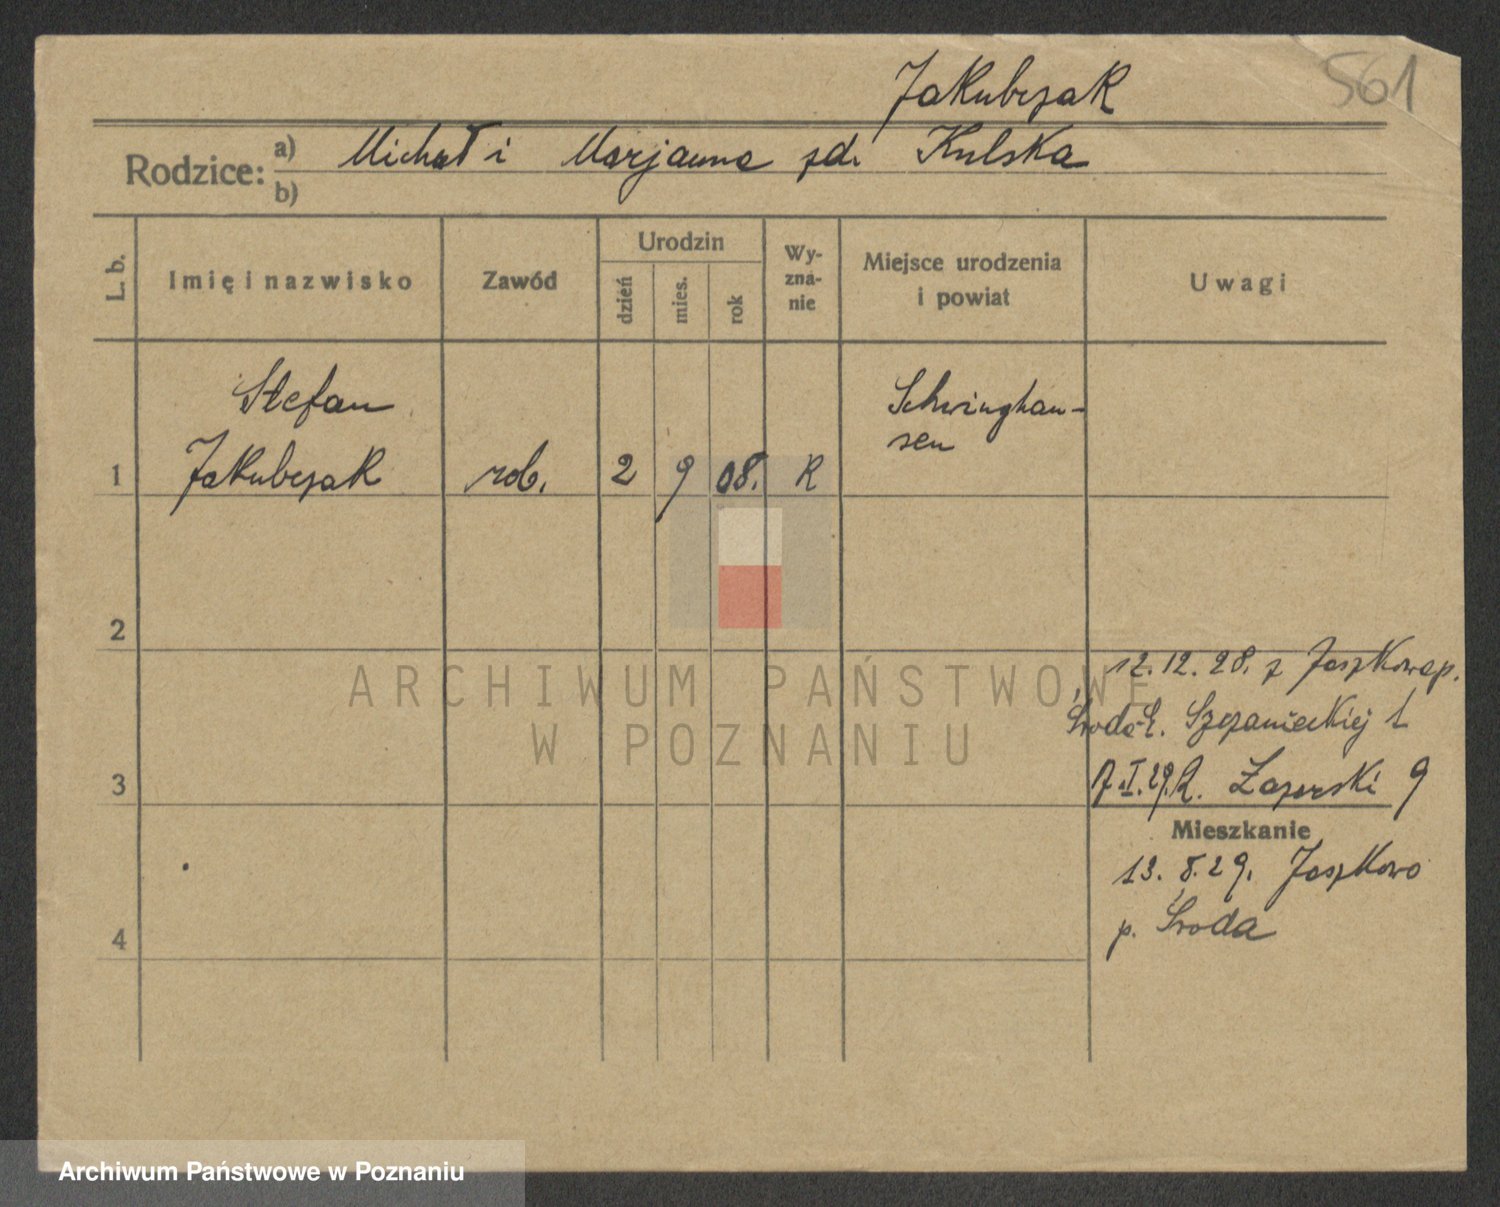 Jakubczak
561
Rodzice: a) Michał i Marjanna zd. Kulska
b)
L. b.
Imię i nazwisko
Zawód
Urodzin
dzień
mies.
rok
Wy-
zna-
nie
Miejsce urodzenia
i powiat
Uwagi
Stefan
Jakubczak
1
rob.
2
9
08.
R
Schwinghau-
sen
2
12.12.28. z Jaszkowa p.
Środa Ł. Szczanieckiej 1
7.I.29. R. Łazarski 9
3
Mieszkanie
13.8.29. Jaszkowo
p. Środa
4
ARCHIWUM PAŃSTWOWE
W POZNANIU
Archiwum Państwowe w Poznaniu